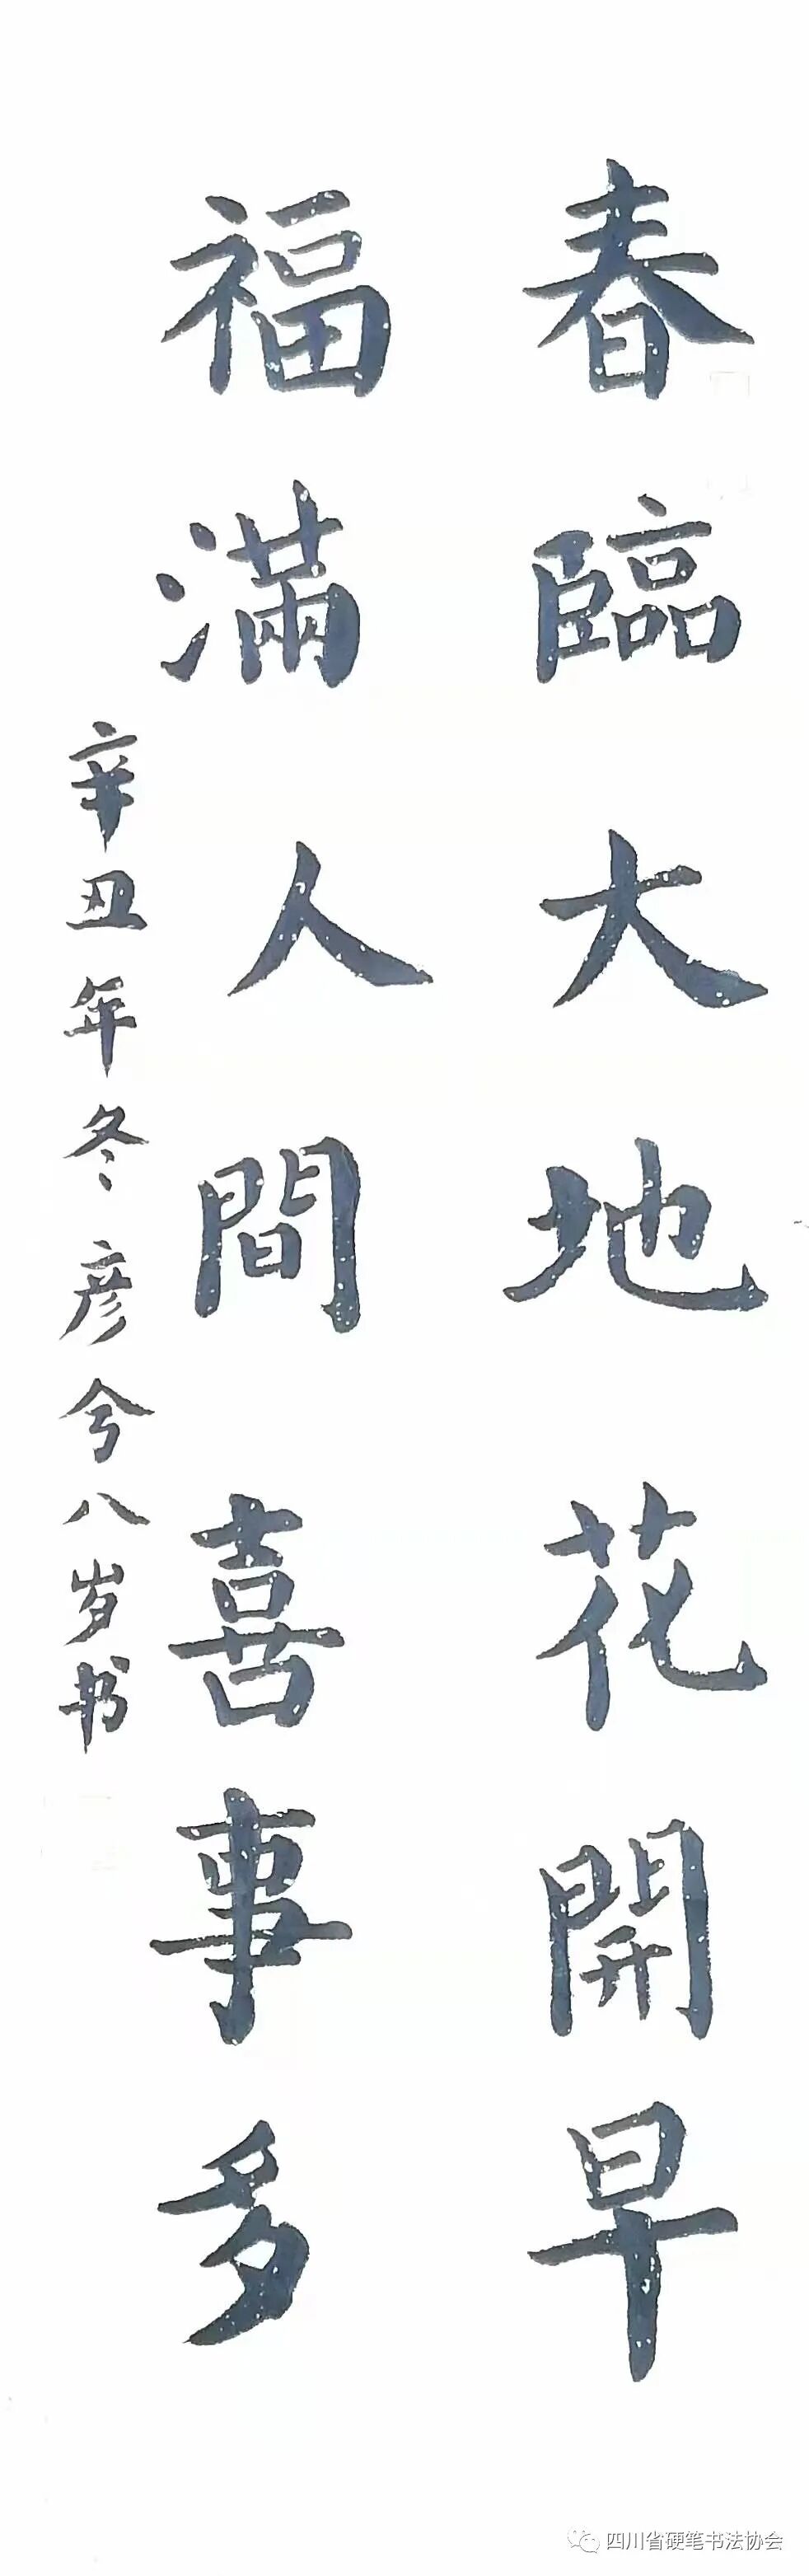 春臨大地花開早
福滿人間喜事多
辛丑年冬彦兮八岁书
四川省硬笔书法协会